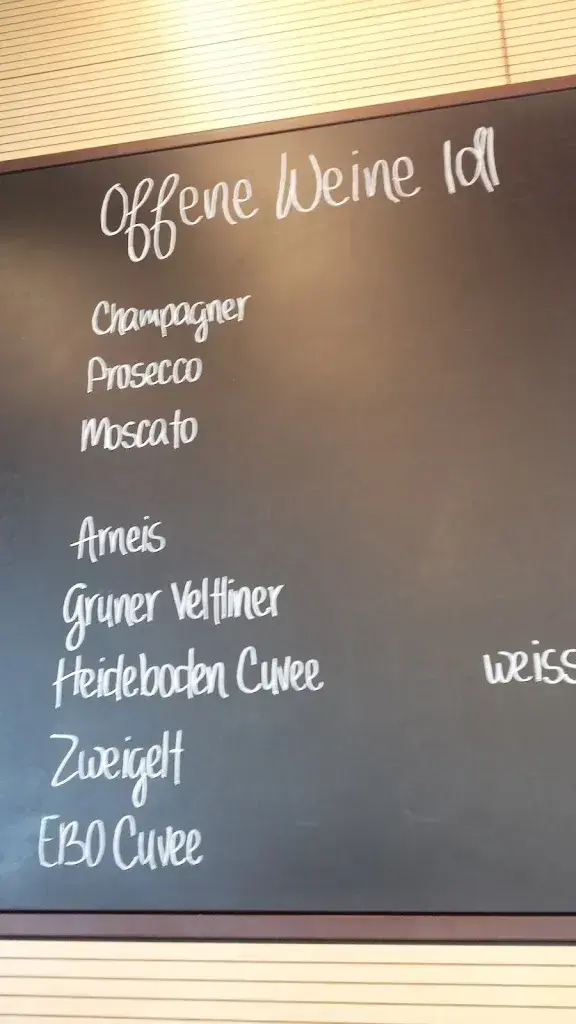 Offene Weine 1dl
Champagner
Prosecco
Moscato
Arneis
Gruner Veltliner
Heideboden Cuvee weiss
Zweigelt
EBO Cuvee